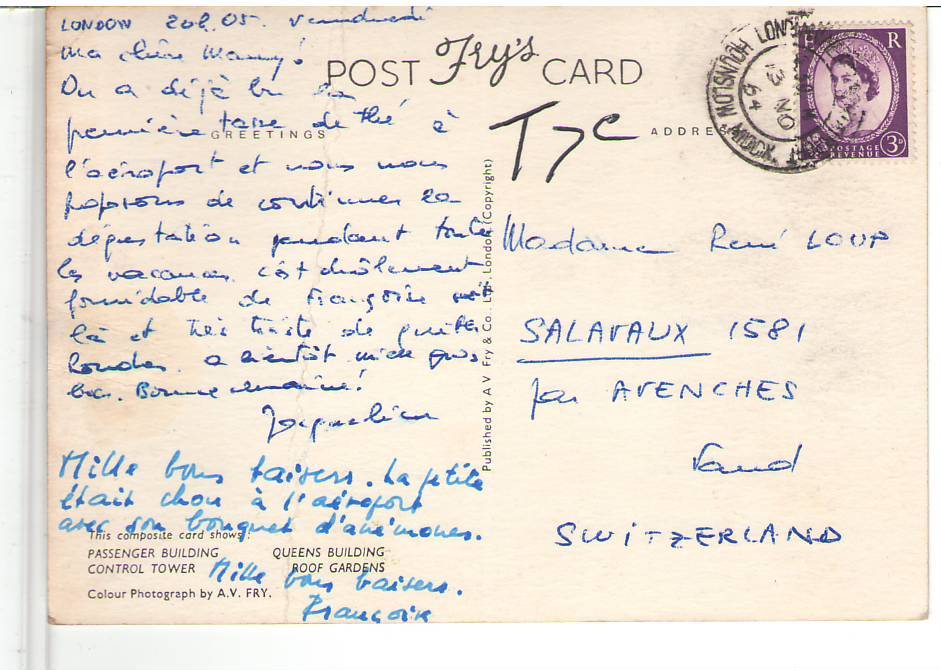 LONDON 20h.05. vendredi
Ma chère Mamy!
POST Fry's CARD
On a déjà bu la
première tasse de thé à
GREETINGS
l'aéroport et nous nous
proposons de continuer la
dégustation pendant toute
les vacances. C'est drôlement
formidable de Françoise soit
là et très triste de quitter
Londres. a bientôt mille gros
bcs. Bonne semaine!
Jacqueline
Mille bons baisers. La petite
était chou à l'aéroport
avec son bouquet d'anémones.
This composite card shows:
PASSENGER BUILDING QUEENS BUILDING
CONTROL TOWER ROOF GARDENS
Mille bons baisers.
Colour Photograph by A.V. FRY.
Françoise
Published by A V. Fry & Co. Ltd., London (Copyright)
ADDRESS
HOUNSLOW LONDON
13 NO
64
E R
POSTAGE
REVENUE 3D
Madame René LOUP
SALAVAUX 1581
par AVENCHES
Vaud
SWITZERLAND